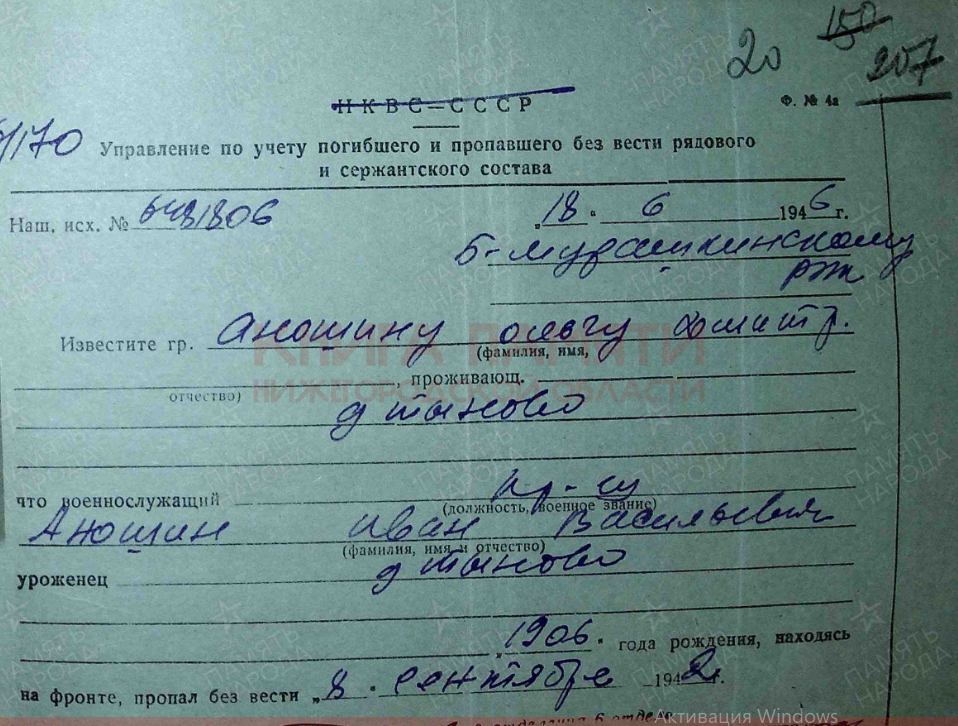 20 150 207
НКВС—СССР
Ф. № 4а
170 Управление по учету погибшего и пропавшего без вести рядового
и сержантского состава
Наш, исх. № 648806 „18" 6 1946г.
Б-мурашкинскому
рвк
Известите гр. Аношину Ольгу Дмитр.
(фамилия, имя,
отчество) , проживающ.
д тыново
что военнослужащий кр-ец
(должность, военное звание)
Аношин Иван Васильевич
(фамилия, имя и отчество)
уроженец д тыново
„1906" года рождения, находясь
на фронте, пропал без вести „8" сентября 1942г.
6 отдела
КНИГА ПАМЯТИ
НИЖЕГОРОДСКОЙ ОБЛАСТИ
ПАМЯТЬ НАРОДА
Активация Windows